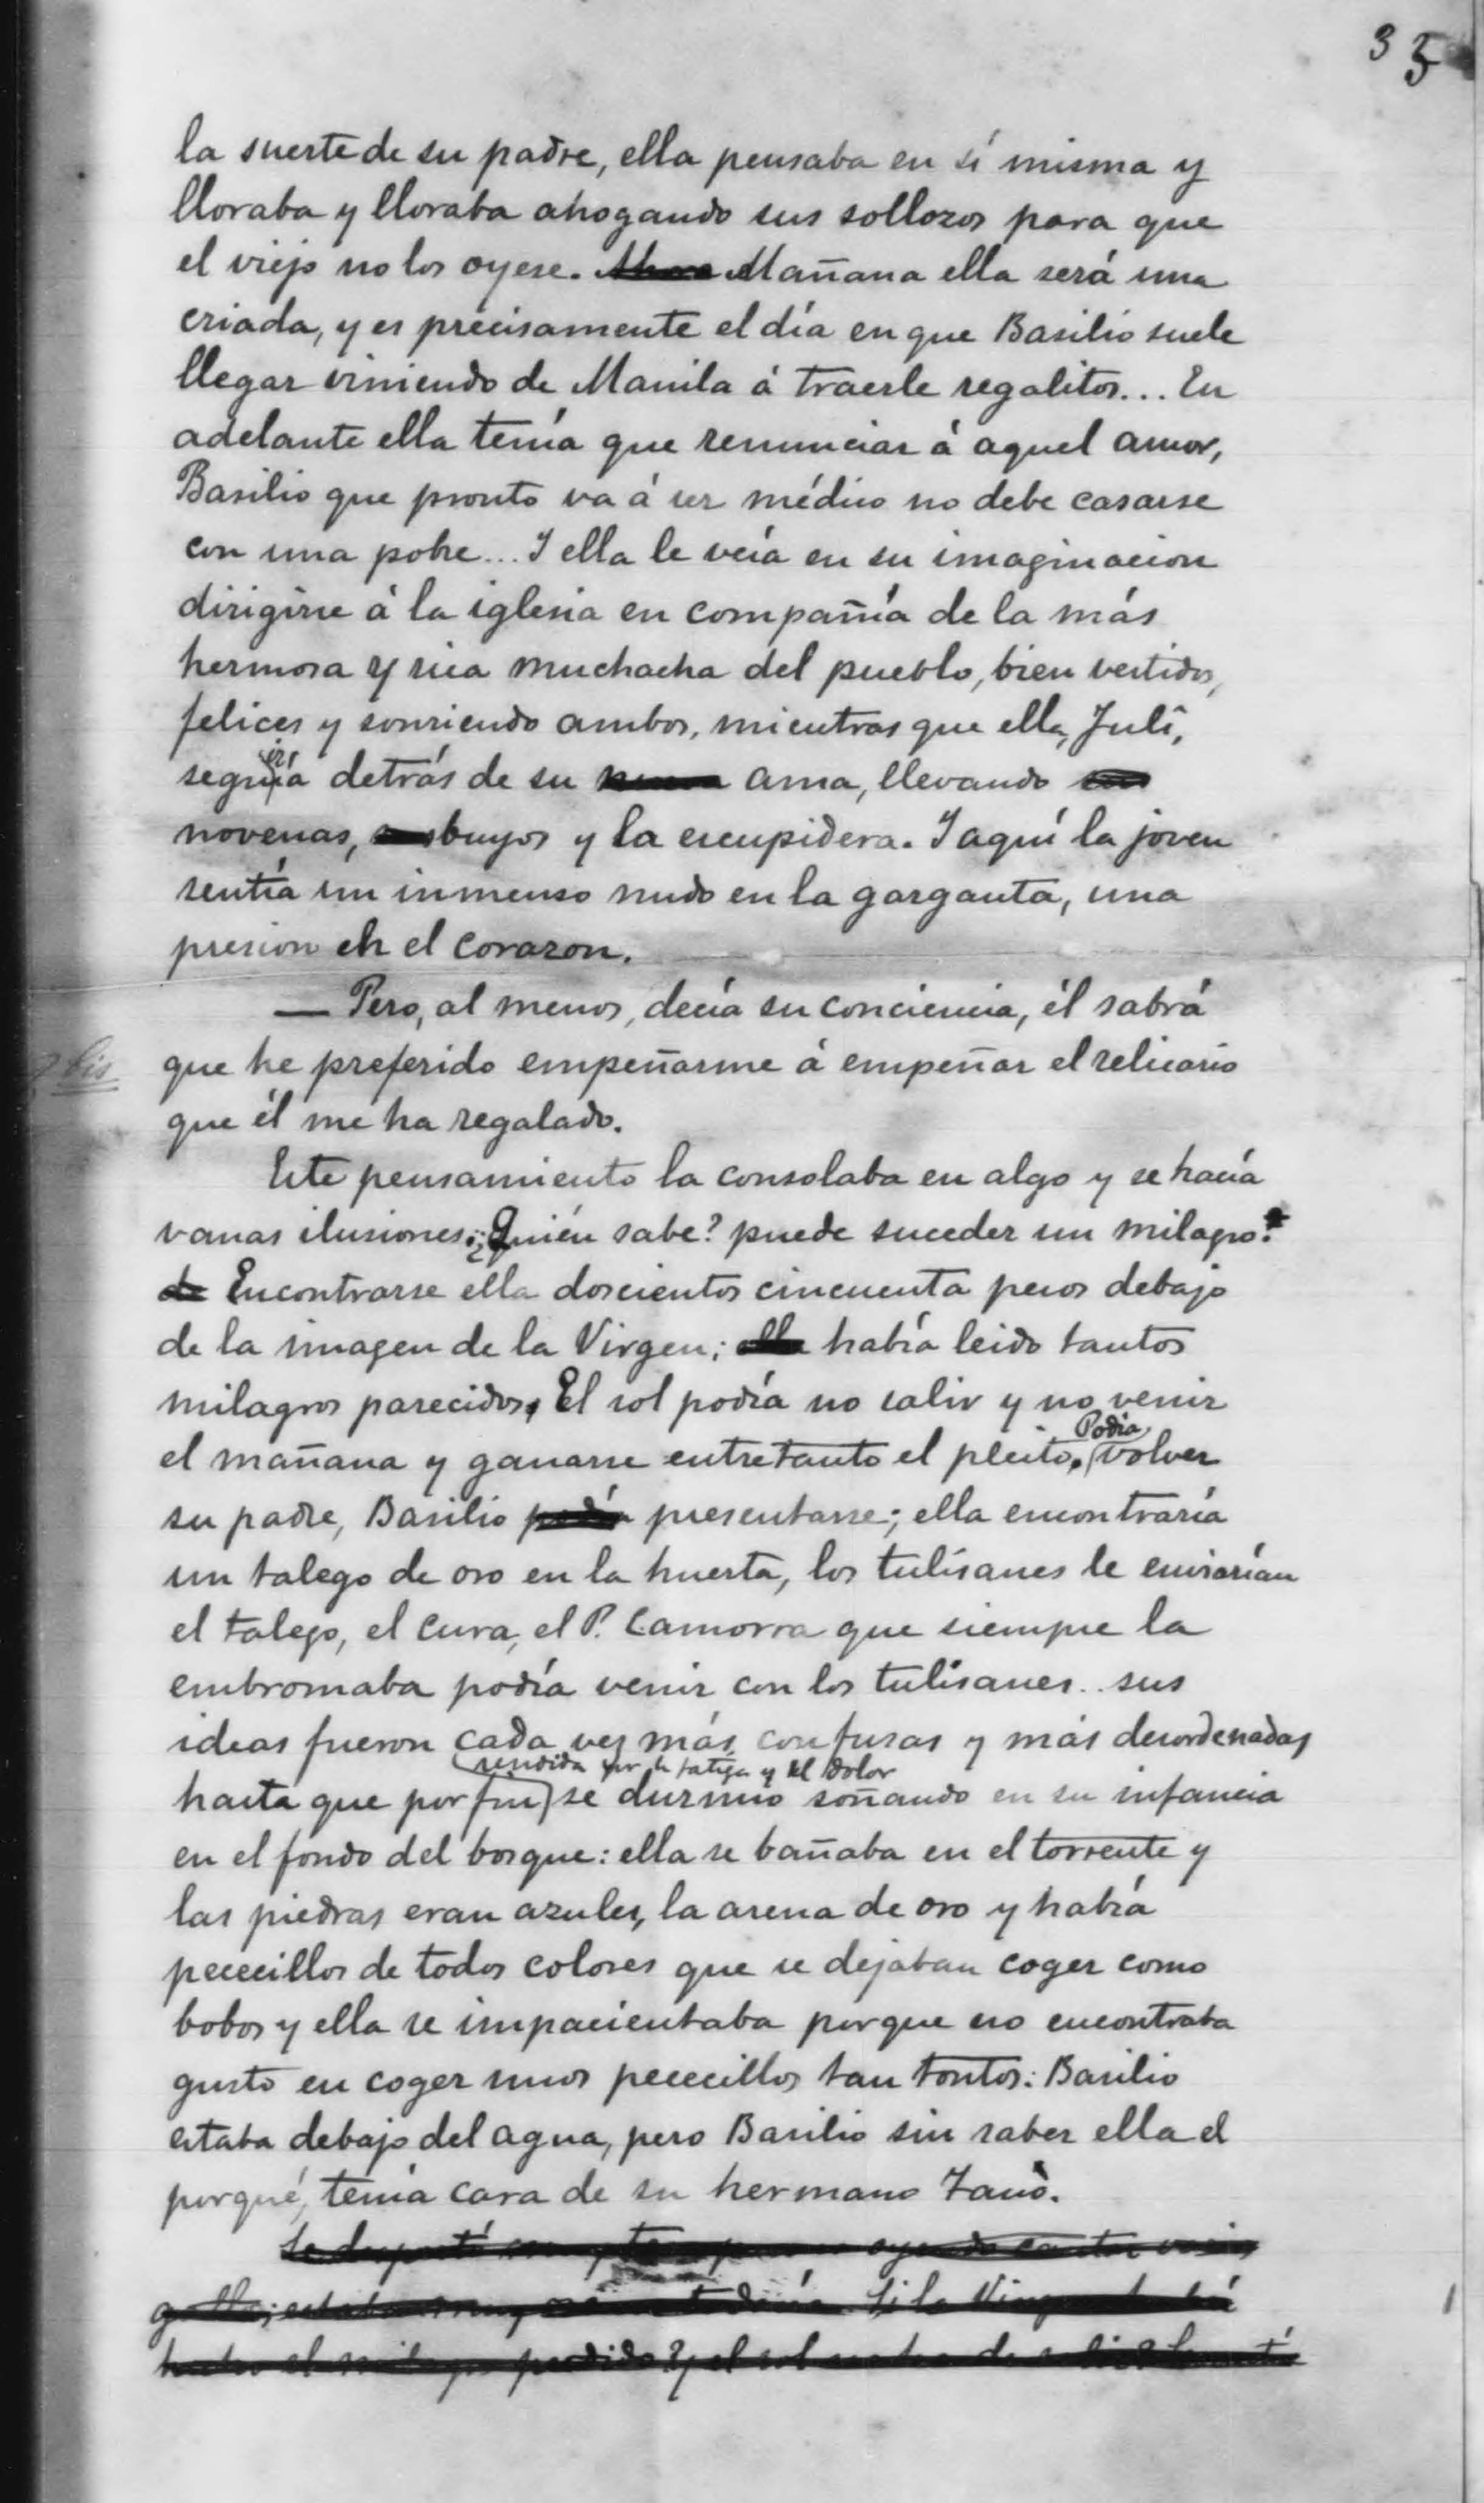 35
la suerte de su padre, ella pensaba en sí misma y
lloraba y lloraba ahogando sus sollozos para que
el viejo no los oyese. Ahora Mañana ella será una
criada, y es precisamente el día en que Basilio suele
llegar viniendo de Manila á traerle regalitos... En
adelante ella tenía que renunciar á aquel amor,
Basilio que pronto va á ser médico no debe casarse
con una pobre... Y ella le veía en su imaginacion
dirigirse á la iglesia en compañía de la más
hermosa y rica muchacha del pueblo, bien vestidos,
felices y sonriendo ambos, mientras que ella, Julî,
seguiría detrás de su ama, llevando
novenas, buyos y la escupidera. Y aquí la joven
sentía un inmenso nudo en la garganta, una
presion en el corazon.
— Pero, al menos, decía su conciencia, él sabrá
bis
que he preferido empeñarme á empeñar el relicario
que él me ha regalado.
Este pensamiento la consolaba en algo y se hacía
vanas ilusiones. ¿Quién sabe? puede suceder un milagro:
de Encontrarse ella doscientos cincuenta pesos debajo
de la imagen de la Virgen; ella había leido tantos
milagros parecidos. El sol podía no salir y no venir
el mañana y ganarse entretanto el pleito. Podía volver
su padre, Basilio podía presentarse; ella encontraría
un talego de oro en la huerta, los tulisanes le enviarían
el talego, el cura, el P. Camorra que siempre la
embromaba podía venir con los tulisanes.. sus
ideas fueron cada vez más confusas y más desordenadas
rendida por la fatiga y el dolor
hasta que por fin se durmió soñando en su infancia
en el fondo del bosque: ella se bañaba en el torrente y
las piedras eran azules, la arena de oro y había
pececillos de todos colores que se dejaban coger como
bobos y ella se impacientaba porque no encontraba
gusto en coger unos pececillos tan tontos: Basilio
estaba debajo del agua, pero Basilio sin saber ella el
porqué, tenía cara de su hermano Tanò.
Se despertó oyendo cantar
Si la Virgen
el milagro pedido? y el sol